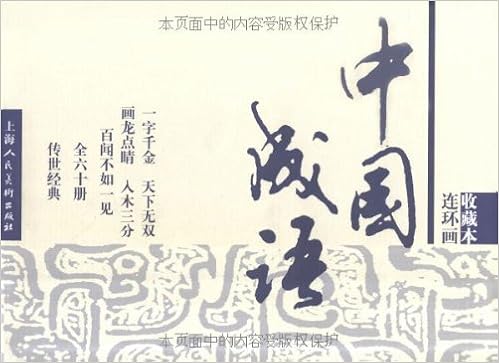 本页面中的内容受版权保护
中国
成语
收藏本
连环画
一字千金 天下无双
画龙点睛 入木三分
百闻不如一见
全六十册
传世经典
上海人民美术出版社
本页面中的内容受版权保护